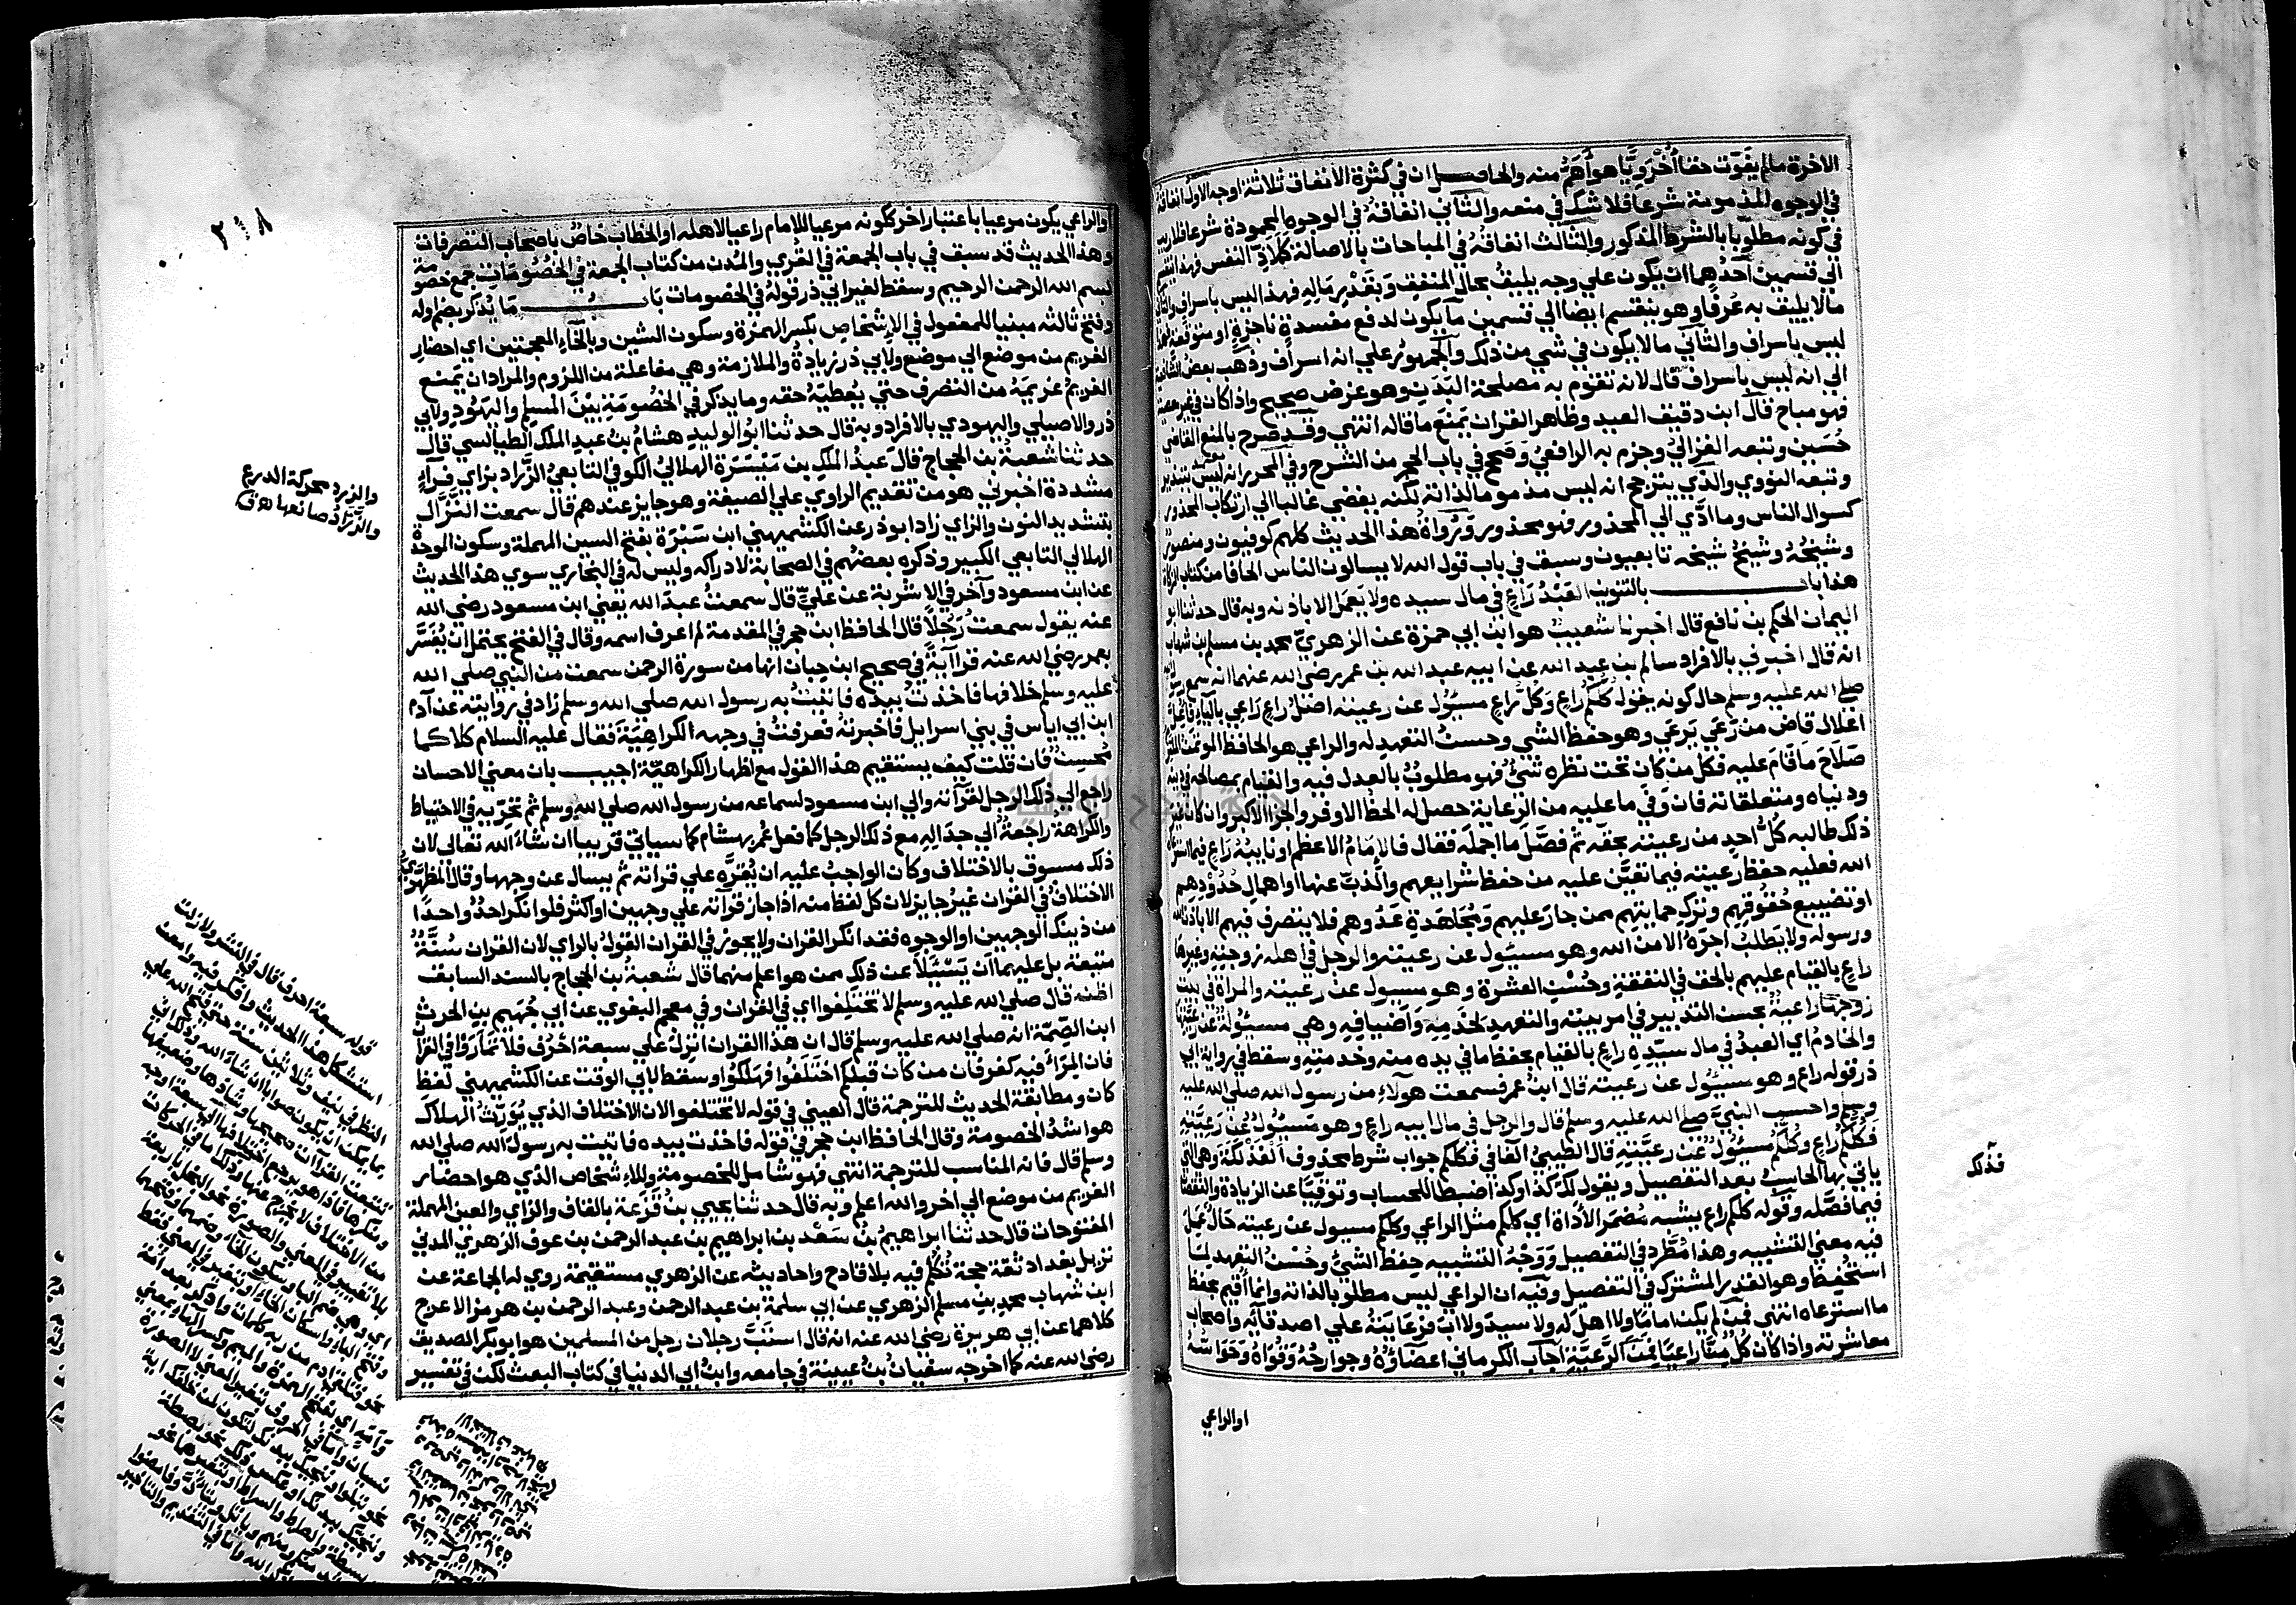 الاخرة مالم يفوت حقا اخرويا هو اهم منه والحاصل ان في كثرة الانفاق ثلاثة اوجه الاول انفاقه
في الوجوه المذمومة شرعا فلا شك في منعه والثاني انفاقه في الوجوه المحمودة شرعا فلا ريب
في كونه مطلوبا بالشرط المذكور والثالث انفاقه في المباحات بالاصالة كملاذ النفس فهذا ينقسم
الي قسمين احدهما ان يكون علي وجه يليق بحال المنفق وبقدر ماله فهذا ليس باسراف والثاني
ما لا يليق به عرفا وهو ينقسم ايضا الي قسمين ما يكون لدفع مفسدة ناجزة او متوقعة فهذا
ليس باسراف والثاني مالا يكون في شي من ذلك والجمهور علي انه اسراف وذهب بعض الشافعية
الي انه ليس باسراف قال لانه تقوم به مصلحة البدن وهو غرض صحيح واذا كان في غير معصية
فهو مباح قال ابن دقيق العيد وظاهر القران يمنع ما قاله انتهي وقد صرح بالمنع القاضي
حسين وتبعه الغزالي وجزم به الرافعي وصحح في باب الحجر من الشرح وفي المحرر انه ليس بتبذير
وتبعه النووي والذي يترجح انه ليس مذموما لذاته لكنه يفضي غالبا الي ارتكاب المحذور
كسوال الناس وما ادي الي المحذور فهو محذور ورواة هذا الحديث كلهم كوفيون ومنصور
وشيخه وشيخ شيخه تابعيون وسبق في باب قول الله لا يسالون الناس الحافا من كتاب الزكاة
هذا باب بالتنوين العبد راع في مال سيده ولا يعمل الا باذنه وبه قال حدثنا ابو
اليمان الحكم بن نافع قال اخبرنا شعيب هو ابن ابي حمزة عن الزهري محمد بن مسلم بن شهاب
انه قال اخبرني بالافراد سالم بن عبد الله عن ابيه عبد الله بن عمر رضي الله عنهما انه سمع رسول الله
صلي الله عليه وسلم حال كونه يقول كلكم راع وكل راع مسؤل عن رعيته اصل راع راعي بالياء فاعل
اعلال قاض من رعي يرعي وهو حفظ الشي وحسن التعهد له والراعي هو الحافظ الموتمن الملتزم
صلاح ما قام عليه فكل من كان تحت نظره شئ فهو مطلوب بالعدل فيه والقيام بمصالحه في دينه
ودنياه ومتعلقاته فان وفي ما عليه من الرعاية حصل له الحظ الاوفر والجزا الاكبر وان كان غير
ذلك طالبه كل احد من رعيته بحقه ثم فصل ما اجمله فقال فالامام الاعظم او نايبه راع فيما استرعاه
الله فعليه حفظ رعيته فيما تعين عليه من حفظ شرايعهم والذب عنها او اهمال حدودهم
او تضييع حقوقهم وترك حمايتهم ممن جار عليهم ومجاهدة عدوهم فلا يتصرف فيهم الا باذن الله
ورسوله ولا يطلب اجره الا من الله وهو مسؤل عن رعيته والرجل في اهله زوجته وغيرها
راع بالقيام عليهم بالحق في النفقة وحسن العشرة وهو مسؤل عن رعيته والمراة في بيت
زوجها راعية بحسن التدبير في امر بيته والتعهد لخدمه واضيافه وهي مسؤلة عن رعيتها
والخادم اي العبد في مال سيده راع بالقيام بحفظ ما في يده منه وخدمته وسقط في رواية ابي
ذر قوله راع وهو مسؤل عن رعيته قال ابن عمر فسمعت هولاء من رسول الله صلي الله عليه
وسلم واحسب النبي صلي الله عليه وسلم قال والرجل في مال ابيه راع وهو مسؤل عن رعيته
فكلكم راع وكلكم مسؤل عن رعيته قال الطيبي الفا في فكلكم جواب شرط محذوف الفذلكة وهي التي
ياتي بها الحاسب بعد التفصيل ويقول لك كذا وكذا ضبطا للحساب وتوقيا عن الزيادة والنقصان
فيما فصله وقوله كلكم راع يشبه مضمر الاداة اي كلكم مثل الراعي وكلكم مسؤل عن رعيته حال عمل
فيه معني التشبيه وهذا مطرد في التفصيل ووجه التشبيه حفظ الشئ وحسن التعهد لما
استحفظ وهو القدر المشترك في التفصيل وفيه ان الراعي ليس مطلوبا لذاته وانما اقيم بحفظ
ما استرعاه انتهي فمن لم يكن اماما ولا اهل له ولا سيد ولا اب فرعايته علي اصدقائه واصحاب
معاشرته واذا كان كل منا راعيا فمن الرعية اجاب الكرماني اعضاؤه وجوارحه وقواه وحواسه
او الراعي
فذلك
او الراعي يكون مرعيا باعتبار اخر لكونه مرعيا للامام راعيا لاهله او الخطاب خاص باصحاب التصرفات
وهذا الحديث قد سبق في باب الجمعة في القري والمدن من كتاب الجمعة في الخصومات جمع خصومة
بسم الله الرحمن الرحيم وسقط لغير ابي ذر قوله في الخصومات باب ما يذكر بضم اوله
وفتح ثالثه مبنيا للمفعول في الاشخاص بكسر الهمزة وسكون الشين وبالخاء المعجمتين اي احضار
الغريم من موضع الي موضع ولابي ذر زيادة والملازمة وهي مفاعلة من اللزوم والمراد ان يمنع
الغريم غريمه من التصرف حتي يعطيه حقه وما يذكر في الخصومة بين المسلم واليهود ولابي
ذر والاصيلي واليهودي بالافراد وبه قال حدثنا ابو الوليد هشام بن عبد الملك الطيالسي قال
حدثنا شعبة بن الحجاج قال عبد الملك بن ميسرة الهلالي الكوفي التابعي الزراد بزاي فراء
مشددة اخبرني هو من تقديم الراوي علي الصيغة وهو جايز عندهم قال سمعت النزال
بتشديد النون والزاي زاد ابو ذر عن الكشميهني ابن سبرة بفتح السين المهملة وسكون الموحدة
الهلالي التابعي الكبير وذكره بعضهم في الصحابة لادراكه وليس له في البخاري سوي هذا الحديث
عن ابن مسعود وآخر في الاشربة عن علي قال سمعت عبد الله يعني ابن مسعود رضي الله
عنه يقول سمعت رجلا قال الحافظ ابن حجر في المقدمة لم اعرف اسمه وقال في الفتح يحتمل ان يفسر
بعمر رضي الله عنه قرا آية في صحيح ابن حبان انها من سورة الرحمن سمعت من النبي صلي الله
عليه وسلم خلافها فاخذت بيده فاتيت به رسول الله صلي الله وسلم زاد في روايته عن آدم
ابن ابي اياس في بني اسرايل فاخبرته فعرفت في وجهه الكراهية فقال عليه السلام كلاكما
محسن فان قلت كيف يستقيم هذا القول مع اظهار الكراهية اجيب بان معني الاحسان
راجع الي ذلك الرجل لقرآنه والي ابن مسعود لسماعه من رسول الله صلي الله وسلم ثم تحريه في الاحتياط
والكراهة راجعة الي جداله مع ذلك الرجل كما فعل عمر بهشام كما سياتي قريبا ان شاء الله تعالي لان
ذلك مسوق بالاختلاف وكان الواجب عليه ان يقره علي قراته ثم يسال عن وجهها وقال المظهري
الاختلاف في القران غير جايز لان كل لفظ منه اذا جاز قرآته علي وجهين او اكثر فلو انكر احد واحدا
من ذينك الوجهين او الوجوه فقد انكر القران ولا يجوز في القران القول بالراي لان القران سنة
متبعة بل عليهما ان يسئلا عن ذلك ممن هو اعلم منهما قال شعبة بن الحجاج بالسند السابق
اظنه قال صلي الله عليه وسلم لا تختلفوا اي في القران وفي معجم البغوي عن ابي جهيم بن الحرث
ابن الصمة انه صلي الله عليه وسلم قال ان هذا القران انزل علي سبعة احرف فلا تماروا في القران
فان المراء فيه كفر فان من كان قبلكم اختلفوا فهلكوا وسقط لابي الوقت عن الكشميهني لفظ
كان ومطابقة الحديث للترجمة قال العيني في قوله لا تختلفوا لان الاختلاف الذي يورث الهلاك
هو اشد الخصومة وقال الحافظ ابن حجر في قوله فاخذت بيده فاتيت به رسول الله صلي الله
وسلم قال فانه المناسب للترجمة انتهي فهو شامل للخصومة وللاشخاص الذي هو احضار
الغريم من موضع الي اخر والله اعلم وبه قال حدثنا يحيي بن قزعة بالقاف والزاي والعين المهملة
المفتوحات قال حدثنا ابراهيم بن سعد بن ابراهيم بن عبد الرحمن بن عوف الزهري المدني
نزيل بغداد ثقة حجة تكلم فيه بلا قادح واحاديثه عن الزهري مستقيمة روي له الجماعة عن
ابن شهاب محمد بن مسلم الزهري عن ابي سلمة بن عبد الرحمن وعبد الرحمن بن هرمز الاعرج
كلاهما عن ابي هريرة رضي الله عنه انه قال استب رجلان رجل من المسلمين هو ابو بكر الصديق
رضي الله عنه كما اخرجه سفيان بن عيينة في جامعه وابن ابي الدنيا في كتاب البعث لكن في تفسير
والزرد محركة الدرع
والزراد صانعها ق
قوله سبعة احرف قال في النشر ولا زلت
استشكل هذا الحديث وافكر فيه وامعن
النظر في نيف وثلاثين سنة حتي فتح الله علي
بما يمكن ان يكون صوابا ان شاء الله وذلك اني
تتبعت القراآت صحيحها وشاذها وضعيفها
ومنكرها فاذا هو يرجع اختلافها الي سبعة اوجه